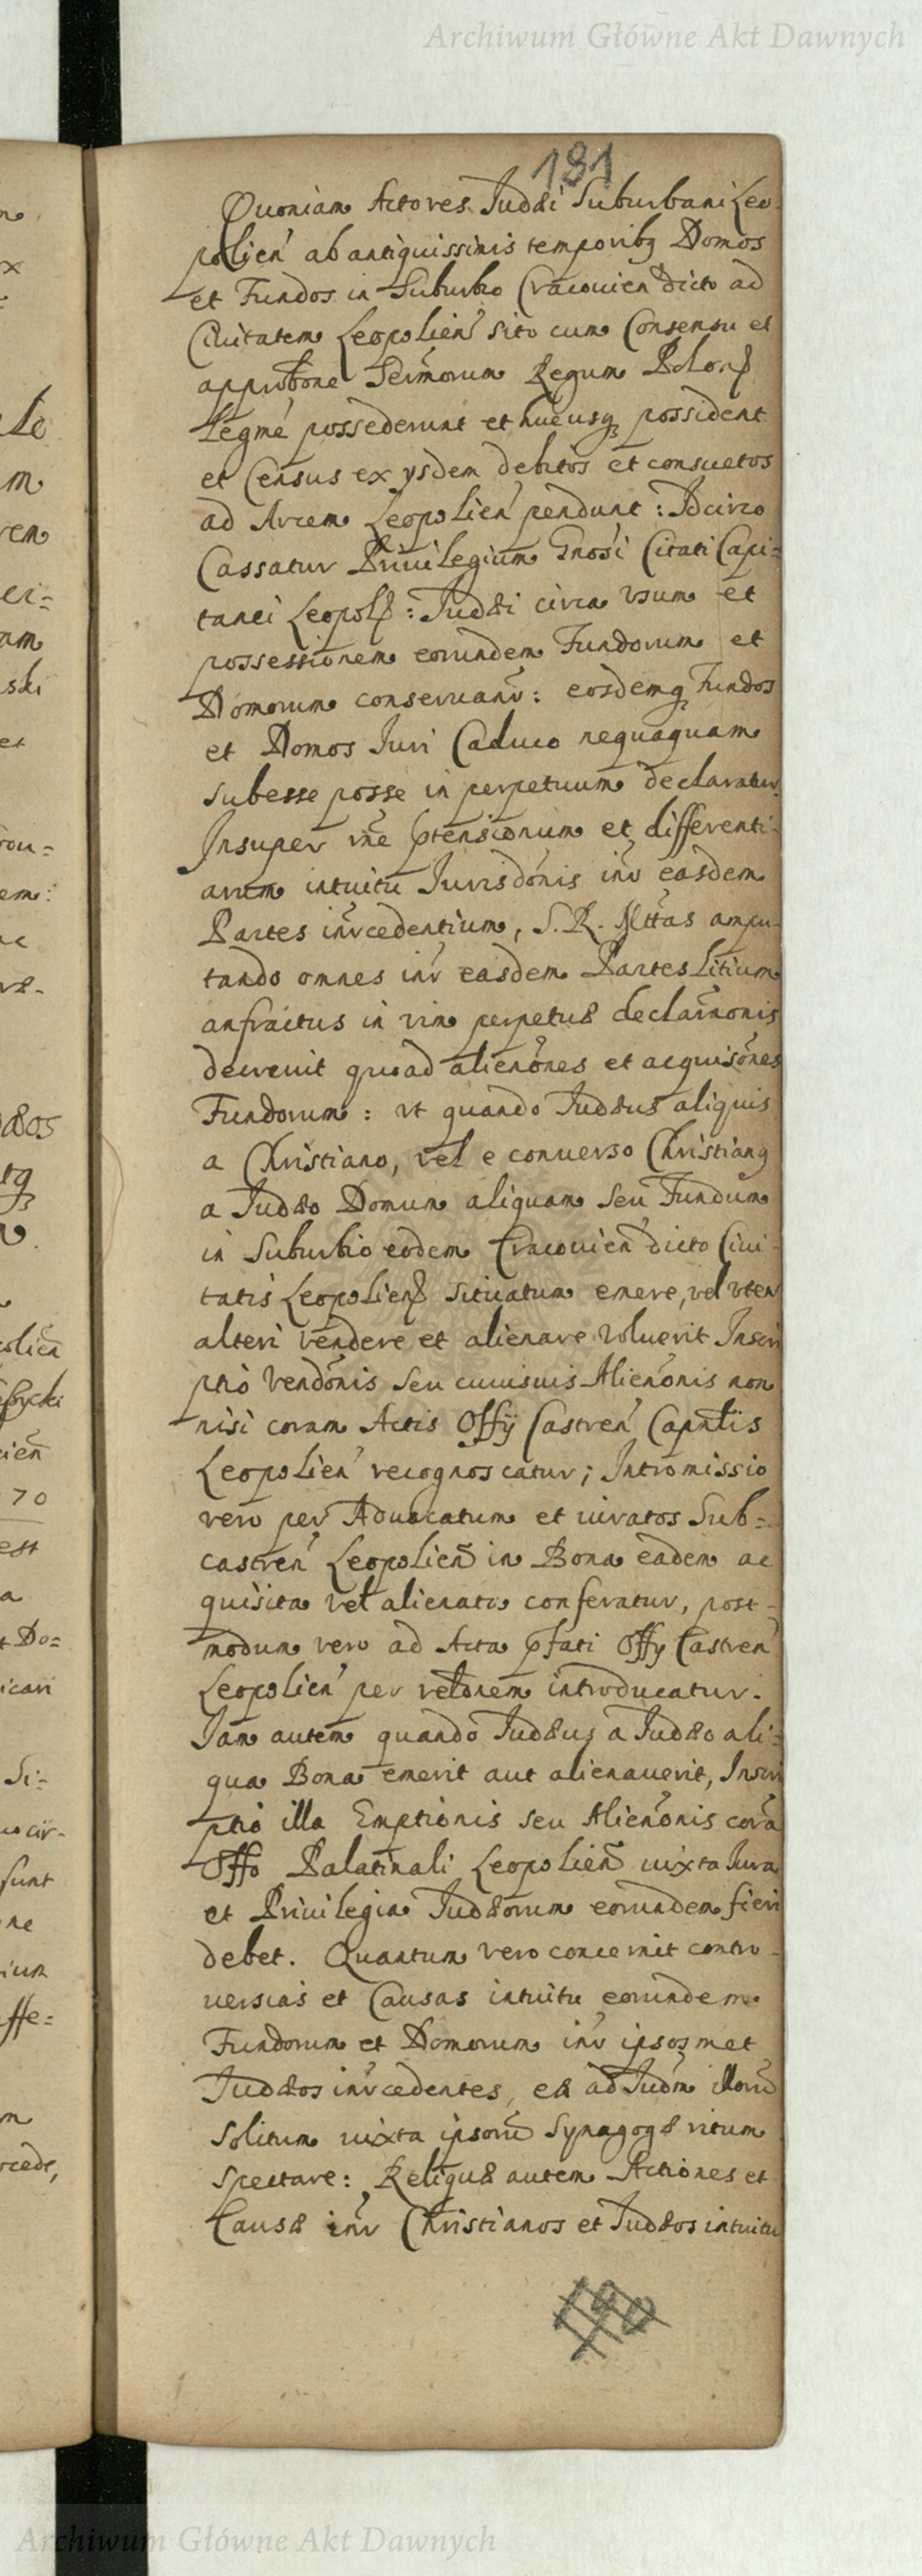 Archiwum Główne Akt Dawnych
181
Quoniam Actores Judæi Suburbani Leo-
polien̄ ab antiquissimis temporibꝫ Domos
et Fundos in Suburbio Cracouien̄ dicto ad
Ciuitatem Leopolien̄ sito cum Consensu et
approb̄one Serm̄orum Regum Poloꝝ
Legm̄e possederunt et hucusqꝫ possident
et Census ex ysdem debitos et consuetos
ad Arcem Leopolien̄ pendunt: Idcirco
Cassatur Priuilegium Gn̄osi Citati Capi=
tanei Leopolꝭ: Judæi circa vsum et
possessionem eorundem Fundorum et
Domorum conseruanr̄: eosdemqꝫ Fundos
et Domos Juri Caduco nequaquam
subesse posse in perpetuum declaratur.
Insuper rn̄e p̄tensionum et differenti-
arum intuitu Jurisdōnis inr̄ easdem
Partes inr̄cedentium, S. R. Mttas ampu-
tando omnes inr̄ easdem Partes Litium
anfractus in vim perpetuæ declar̄onis
decreuit quoad alienōnes et acquisōnes
Fundorum: vt quando Judæus aliquis
a Christiano, vel e conuerso Christianꝰ
a Judæo Domum aliquam seu Fundum
in Suburbio eodem Cracouien̄ dicto Ciui-
tatis Leopolienꝭ situatum emere, vel vter
alteri vendere et alienare voluerit Inscri
ptio vendōnis seu cuiusuis Alienōnis non
nisi coram Actis Offÿ Castren̄ Capn̄lis
Leopolien̄ recognoscatur; Intromissio
vero per Aduocatum et iuratos Sub=
castren̄ Leopolien̄ in Bona eadem ac
quisita vel alienata conferatur, post-
modum vero ad Acta p̄fati Offÿ Castren̄
Leopolien̄ per relōnem introducatur.
Jam autem quando Judæus a Judæo ali=
qua Bona emerit aut alienauerit, Inscri
ptio illa Emptionis seu Alienōnis corā
Offo Palatinali Leopolien̄ iuxta Jura
et Priuilegia Judæorum eorundem fieri
debet. Quantum vero concernit contro-
uersias et Causas intuitu eorundem
Fundorum et Domorum inr̄ ipsosmet
Judæos inr̄cedentes, ea ad Judm̄ illorū
solitum iuxta ipsorū Synagogæ ritum
spectare: Reliquæ autem Actiones et
Causæ inr̄ Christianos et Judæos intuitu
Archiwum Główne Akt Dawnych